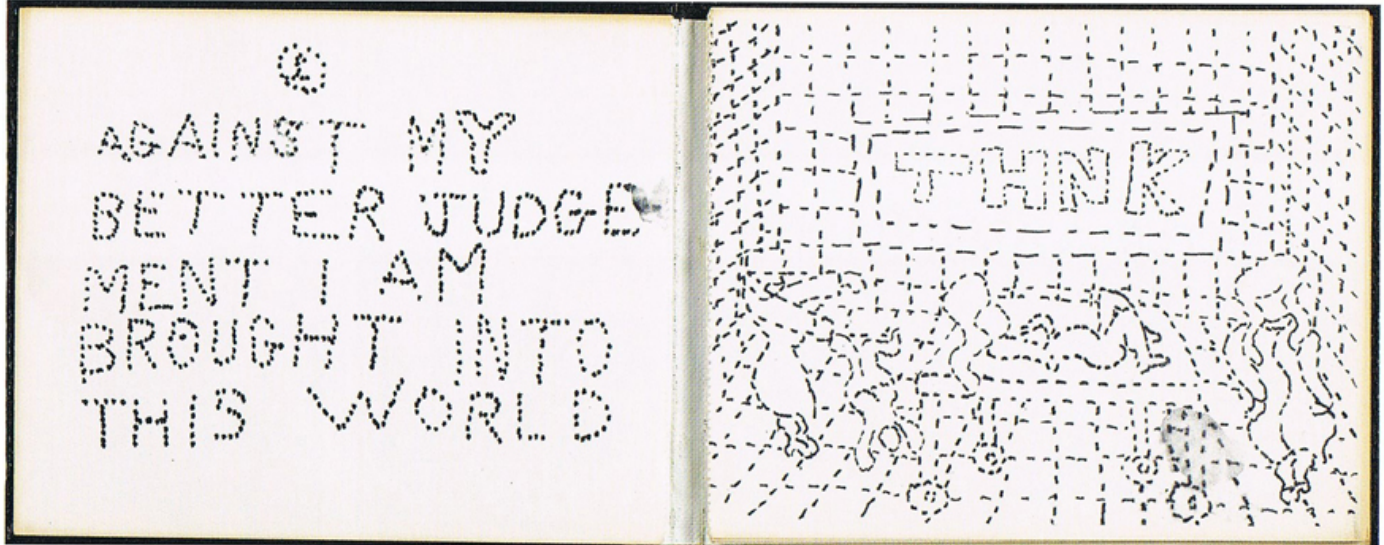 AGAINST MY
BETTER JUDGE
MENT I AM
BROUGHT INTO
THIS WORLD
THNK